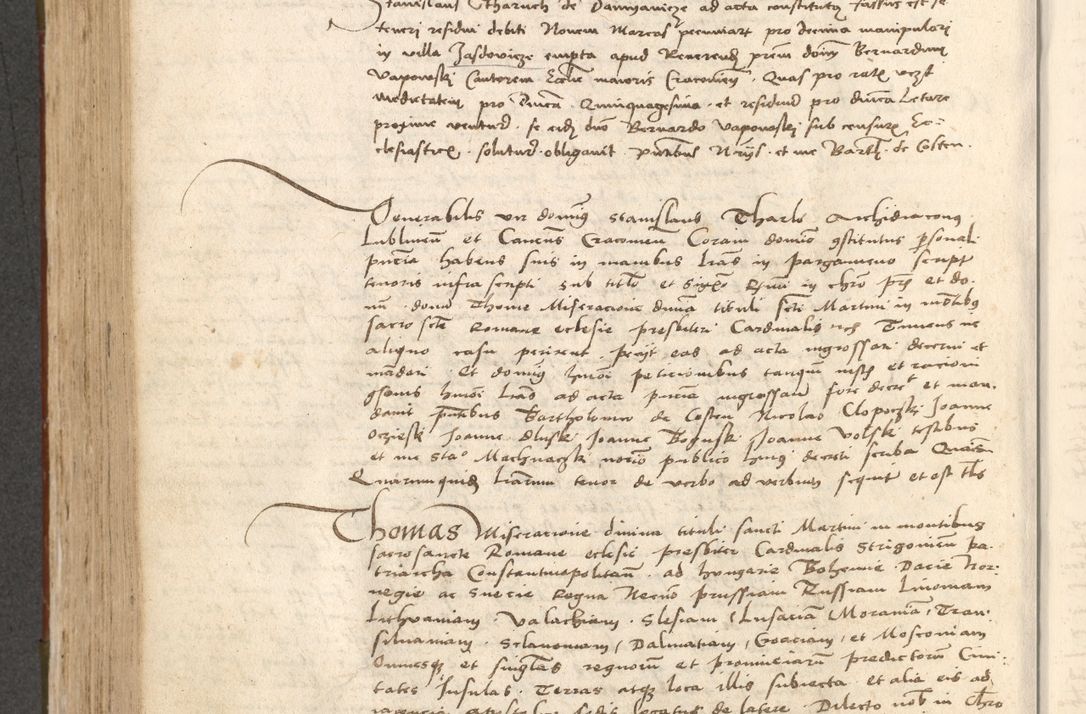 Stanislaus Tharuch de Damyanicze ad acta constitutq fassus est se
teneri residui debiti Novem Marcas pro decima manipulari
in villa Jasdowicze empta apud Reverend prem dnm Bernardinu
Vapowski Cantorem Ecclie maioris Cracovien. Quas pro ratis
medietatem pro dnica Quinquagesima et residuu pro dnica Letare
proxime ventur. se eid dno Bernardo Vapowski sub censuris Ec=
clesiasticq. soluturu obligavit. pntibus Nrijs. et me Barth. de Costen.
Venerabilis vir domins Stanislaus Tharlo Archidiaconq
Lublinen et Cancus Cracovien Coram domino gstitutus psonali
pntia habens suis in manibus lras in pargameno script
tenoris infra scripti sub titlo et sigillo in chro pris et do.
ni. domi Thome Miseracione dnina tituli scti Martini in motibq
sacro scte Romane eclesie presbiteri Cardinalis Timens ne
aliquo casu perirent. petijt eas ad acta ingrossari decerni et
mandari Et domins hmoi peticionibus tanquam iustis et racioni
gsonis hmoi lras ad acta pntia ingrossari fore decrevit et man.
davit pntibus Bartholomeo de Costen Nicolao Clopoczki Joanne
Oczieski Joanne Sluski Joanne Joanne Volski testibus
et me Stao Machnaczki notario publico huiq decreti scriba
Quarumquid lrarum tenor de verbo ad verbum sequitr et est tlis
Thomas Miseracione divina tituli sancti Martini in montibus
sacrosancte Romane eclesie presbiter Cardinalis Strigonien pa.
triarcha Constantinopolitan. ad hungarie Bohemie Dacie Nor.
negie ac Suecie Regna Necno Prussiam Russiam Livoniam
Lithvaniam. Valachiam. Slesiam / Lusaciam Moraviam / Tran.
silvaniam. Sclavoniam / Dalmatiam / Croaciam / et Moscoviam
Omnesq et singlas regnorum et provinciarum predictorum Civi.
tates Insulas. Terras atq loca illis subiecta et alia eis ad
iacencia Legatus de latere. Dilecto nob in Chro